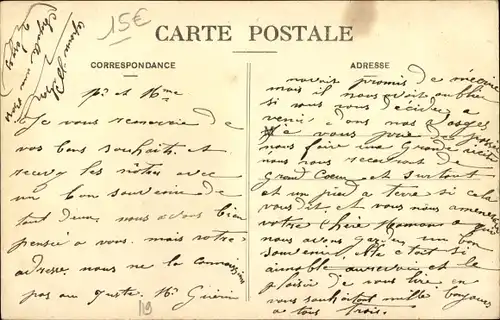 15€
CARTE POSTALE
CORRESPONDANCE
Mr et Mme
Je vous remercie de
vos bons souhaits et
recevez les nôtres avec
un bon souvenir de
tout deux nous avons bien
pensée a vous mais votre
adresse nous ne la connaissions
pas au juste Mr Guerin
ADRESSE
navait promis de
mais il nous avait oublier
si vous vous décidez a
venir dans nos Vosges
je vous prie de
nous faire une Grande visite
nous vous recevront de
Grand Cœur et surtout
et un pied a terre si cela
vous dit et vous nous
votre Chère Maman
nous avons garder un bon
souvenir, elle etait si
aimable au revoir et le
plaisir de vous lire en
vous souhaitant mille bonjours
a tous trois.